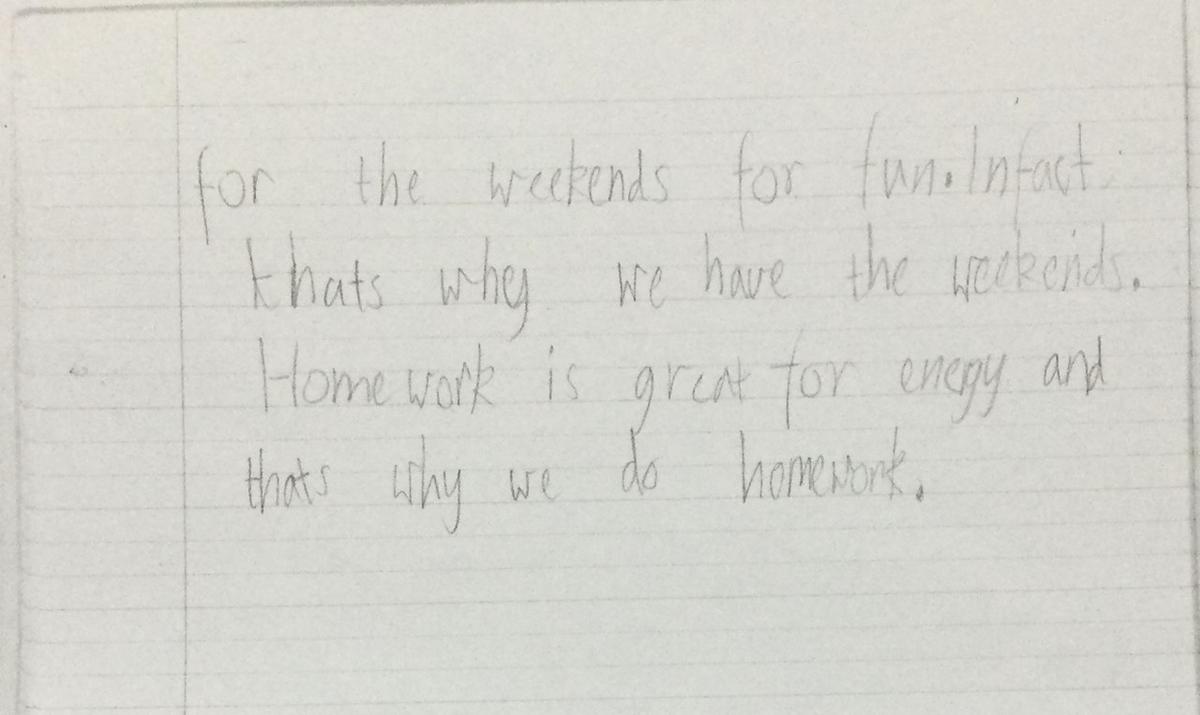 for the weekends for fun. Infact
thats whey we have the weekends.
Homework is great for enegy and
thats why we do homework.